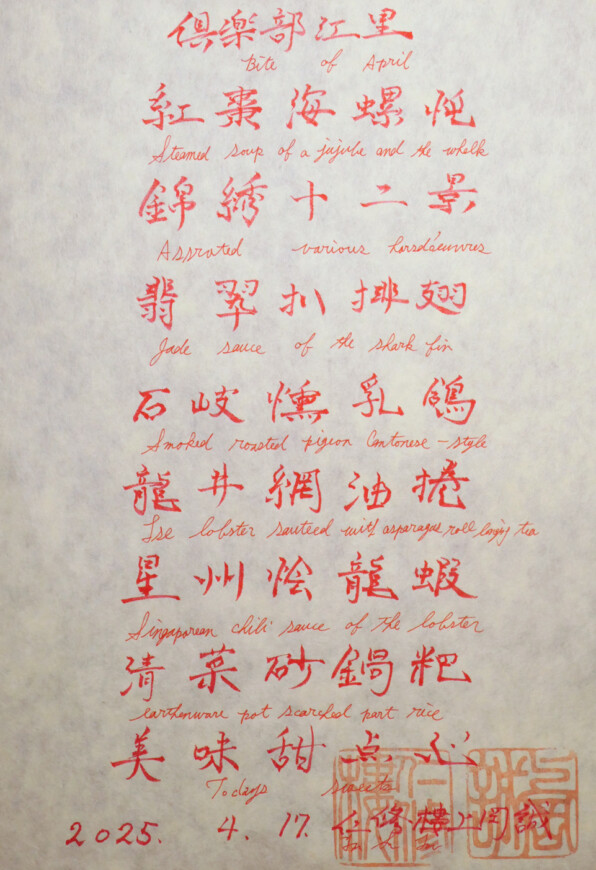 倶楽部江里
Bite of April
紅棗海螺炖
Steamed soup of a jujube and the whelk
錦綉十二景
Assroted various horsd'seuvres
翡翠扒排翅
Jade sauce of the shark fin
石岐燻乳鴿
Smoked roasted pigeon Cantonese-style
龍井網油捲
Ise lobster sauteed with asparagus roll longjg tea
星州烩龍蝦
Singaporean chili sauce of the lobster
清菜砂鍋粑
earthenware pot scarched part rice
美味甜点心
Todays sweets
2025. 4. 17. 仁修樓上岡誠